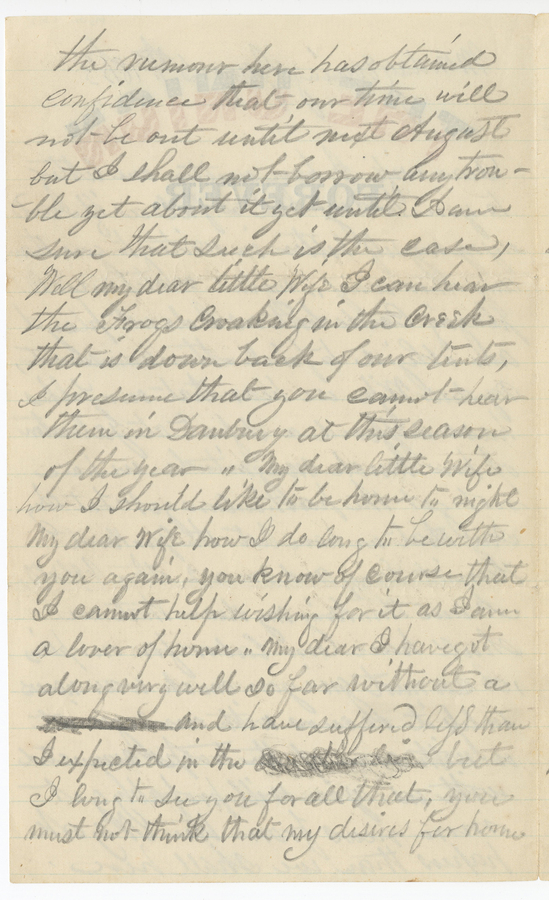 the rumour here has obtained
confidence that our time will
not be out until next August
but I shall not borrow any trou-
ble yet about it yet until I am
sure that such is the case,
Well my dear little Wife I can hear
the Frogs Croaking in the Creek
that is down back of our tents,
I presume that you cannot hear
them in Danbury at this season
of the year " My dear little Wife
how I should like to be home to night
My dear Wife how I do long to be with
you again, you know of course that
I cannot help wishing for it as I am
a lover of home " My dear I have got
along very well so far without a
and have suffered less than
I expected in the but
I long to see you for all that, you
must not think that my desires for home